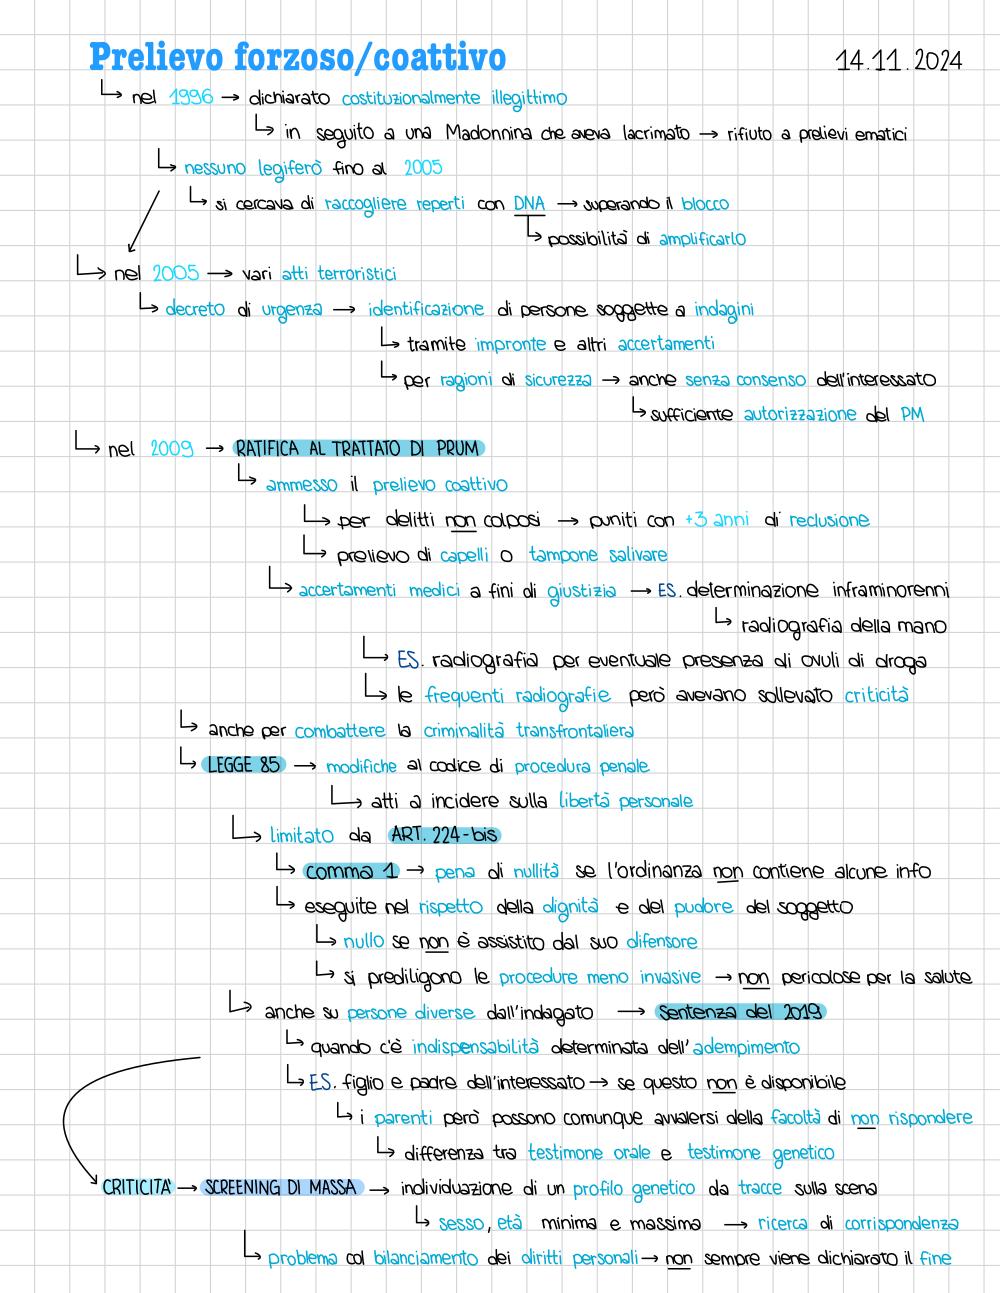 Prelievo forzoso/coattivo 14.11.2024
↳ nel 1996 → dichiarato costituzionalmente illegittimo
↳ in seguito a una Madonnina che aveva lacrimato → rifiuto a prelievi ematici
↳ nessuno legiferò fino al 2005
↳ si cercava di raccogliere reperti con DNA → superando il blocco
↳ possibilità di amplificarlo
↳ nel 2005 → vari atti terroristici
↳ decreto di urgenza → identificazione di persone soggette a indagini
↳ tramite impronte e altri accertamenti
↳ per ragioni di sicurezza → anche senza consenso dell'interessato
↳ sufficiente autorizzazione del PM
↳ nel 2009 → RATIFICA AL TRATTATO DI PRUM
↳ ammesso il prelievo coattivo
↳ per delitti non colposi → puniti con +3 anni di reclusione
↳ prelievo di capelli o tampone salivare
↳ accertamenti medici a fini di giustizia → ES. determinazione inframinorenni
↳ radiografia della mano
↳ ES. radiografia per eventuale presenza di ovuli di droga
↳ le frequenti radiografie però avevano sollevato criticità
↳ anche per combattere la criminalità transfrontaliera
↳ LEGGE 85 → modifiche al codice di procedura penale
↳ atti a incidere sulla libertà personale
↳ limitato da ART. 224-bis
↳ comma 1 → pena di nullità se l'ordinanza non contiene alcune info
↳ eseguite nel rispetto della dignità e del pudore del soggetto
↳ nullo se non è assistito dal suo difensore
↳ si prediligono le procedure meno invasive → non pericolose per la salute
↳ anche su persone diverse dall'indagato → Sentenza del 2019
↳ quando c'è indispensabilità determinata dell'adempimento
↳ ES. figlio e padre dell'interessato → se questo non è disponibile
↳ i parenti però possono comunque avvalersi della facoltà di non rispondere
↳ differenza tra testimone orale e testimone genetico
CRITICITA' → SCREENING DI MASSA → individuazione di un profilo genetico da tracce sulla scena
↳ sesso, età minima e massima → ricerca di corrispondenza
↳ problema col bilanciamento dei diritti personali → non sempre viene dichiarato il fine